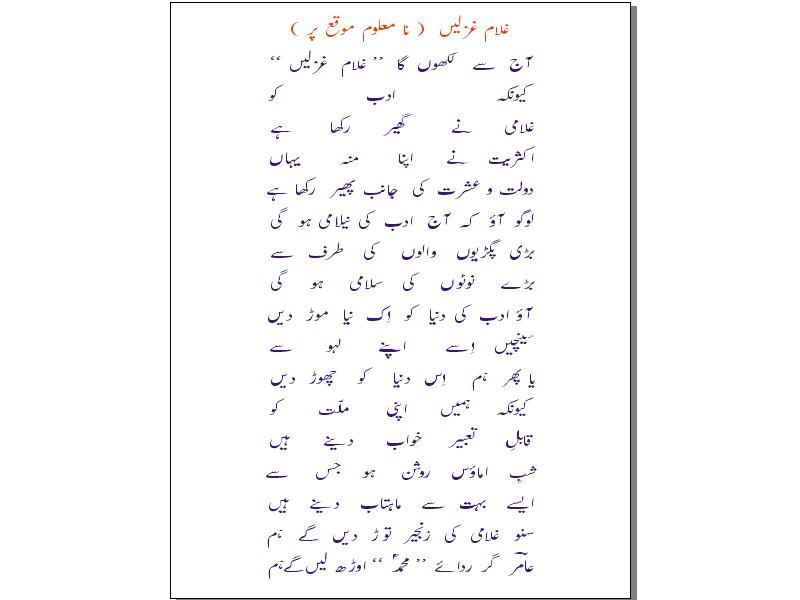 غلام غزلیں ( نا معلوم موقع پر )
آج سے لکھوں گا ’’ غلام غزلیں ‘‘
کیونکہ ادب کو
غلامی نے گھیر رکھا ہے
اکثریت نے اپنا منہ یہاں
دولت و عشرت کی جانب پھیر رکھا ہے
لوگو آؤ کہ آج ادب کی نیلامی ہو گی
بڑی پگڑیوں والوں کی طرف سے
بڑے نوٹوں کی سلامی ہو گی
آؤ ادب کی دنیا کو اِک نیا موڑ دیں
سینچیں اِسے اپنے لہو سے
یا پھر ہم اِس دنیا کو چھوڑ دیں
کیونکہ ہمیں اپنی ملّت کو
قابلِ تعبیر خواب دینے ہیں
شبِ اماؤس روشن ہو جس سے
ایسے بہت سے ماہتاب دینے ہیں
سنو غلامی کی زنجیر توڑ دیں گے ہم
عامرؔ گر ردائے ’’ محمدؐ ‘‘ اوڑھ لیں گے ہم